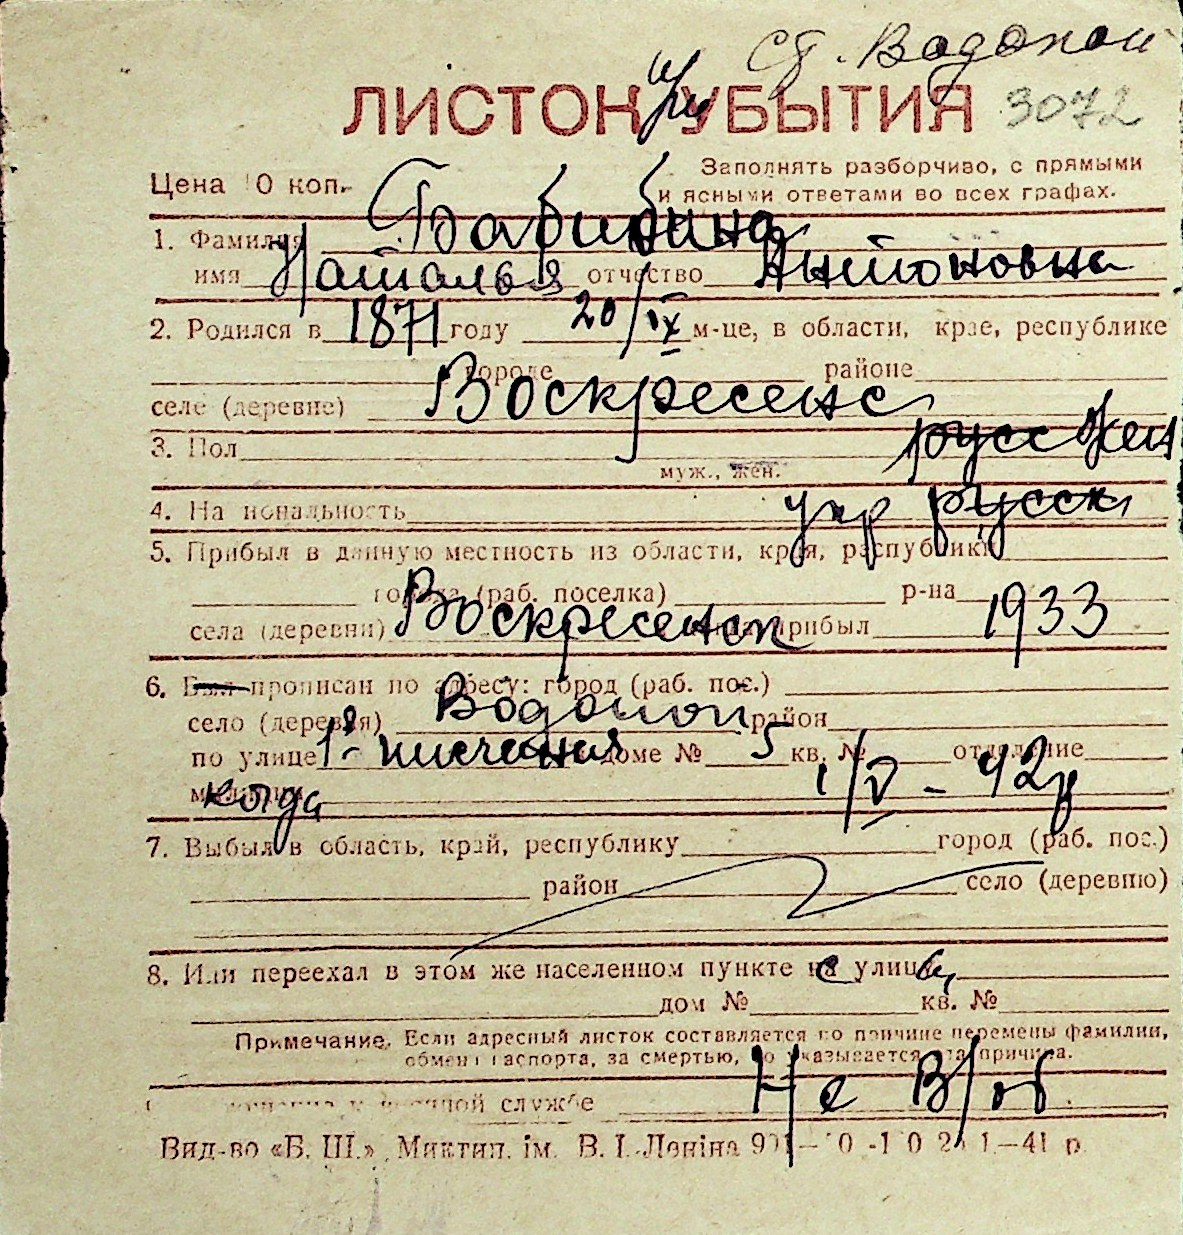 Ст. Водопой
ЛИСТОК УБЫТИЯ 3072
при
Заполнять разборчиво, с прямыми
Цена 10 коп. и ясными ответами во всех графах.
1. Фамилия Бабибина
имя Наталья отчество Антоновна
2. Родился в 1871 году 20/IX м-це, в области, крае, республике
городе районе
селе (деревне) Воскресенс
3. Пол русс жен
муж., жен.
4. Национальность укр русск
5. Прибыл в данную местность из области, края, республики
города (раб. поселка) р-на
села (деревни) Воскресенск прибыл 1933
6. Был прописан по адресу: город (раб. пос.)
село (деревня) Водопой район
по улице 1-я доме № 5 кв. № отделение
милиции когда 1/V - 42 р
7. Выбыл в область, край, республику город (раб. пос.)
район село (деревню)
8. Или переехал в этом же населенном пункте на улицу
дом № кв. №
Примечание. Если адресный листок составляется по причине перемены фамилии,
обмен паспорта, за смертью, то указывается эта причина.
военной службе Н/е В/об
Вид-во «Б. Ш.». Миктип. ім. В. І. Леніна 41 р.